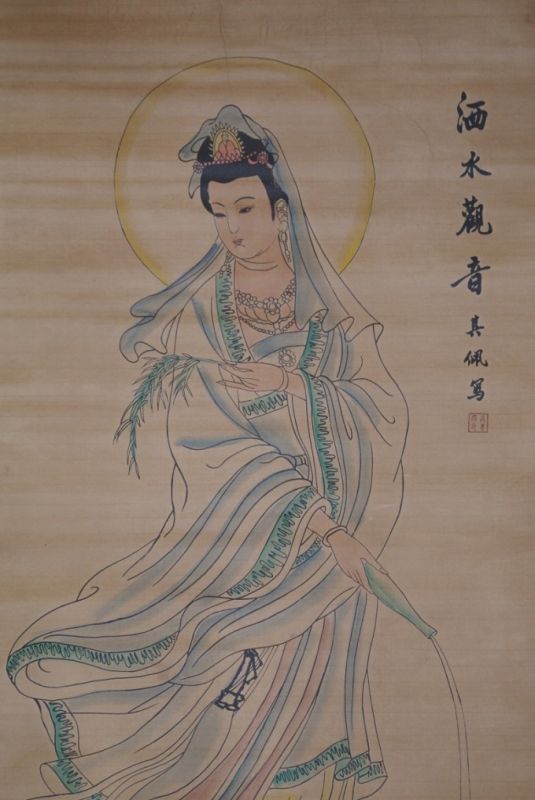 洒水觀音
其佩寫